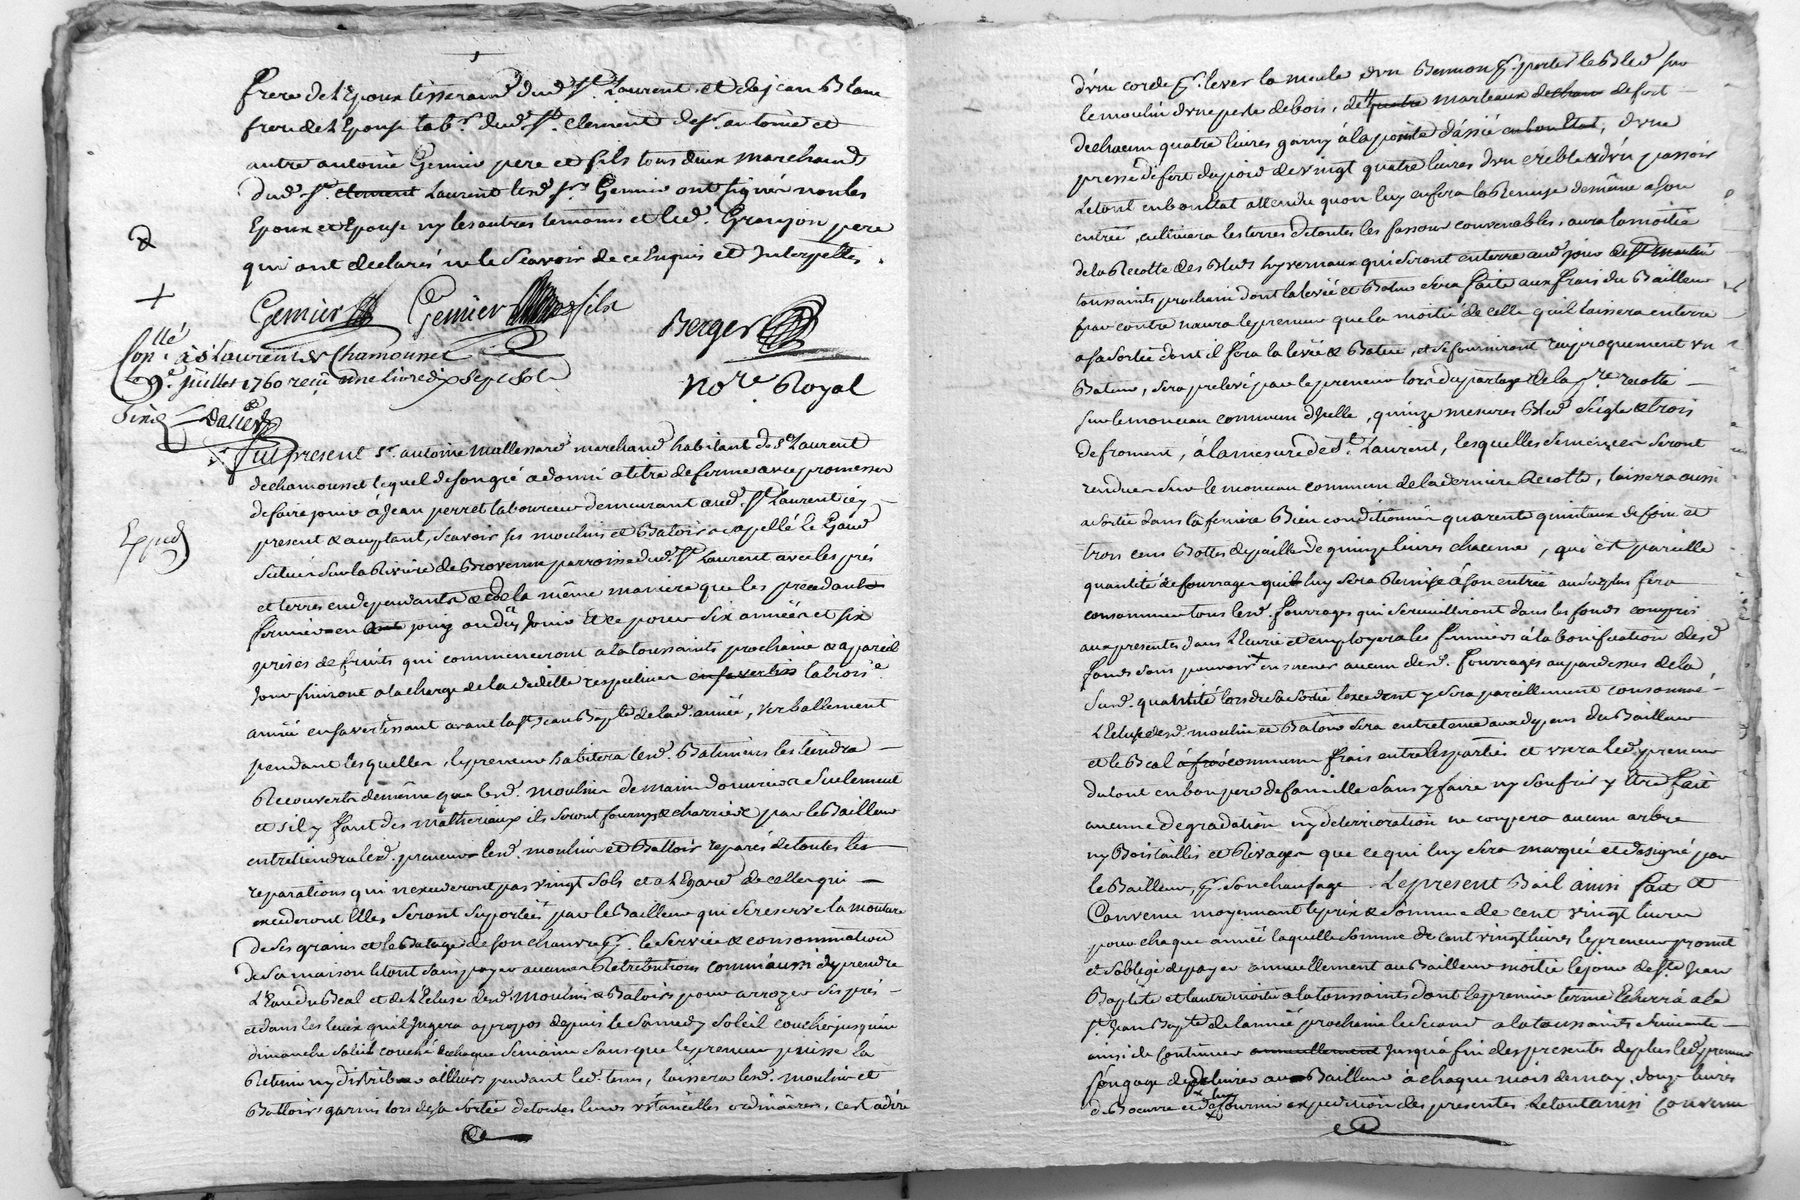 frere de L'Epoux tisserand dud. St. Laurent et de jean Blanc
frere de L'Epouse lab.r dud. St. Clement de sr. antoine et
autre antoine Gemier pere et fils tous deux marchands
dud. St. clement Laurent lesd. srs. Gemier ont signé non les
Epoux et Epouse ny les autres temoins et led. Granjon pere
qui ont declarés ne le Scavoir de ce Enquis et Interpellés.
Gemier Gemier fils
Berger
no.re Royal
Con.llé à St Laurent de Chamousset
Le 9e. juillet 1760 reçu une livre dix sept sols
Dalier
fut present Sr. antoine mallessard marchand habitant de St Laurent
de chamousset lequel de son gré a donné a titre de ferme avec promesse
de faire jouir à Jean perret laboureur demeurant aud. St. Laurent icy
present & acceptant, Scavoir ses moulins et Batoir appellé le
Exped.
Situés Sur la Riviere de Brevenne parroisse dud. St. Laurent avec les prés
et terres en dependants & de la même maniere que les precedants
fermiers en jouy ou dû jouir Et ce pour Six années et six
prises de fruits qui commenceront a la toussaints prochaine & a pareil
jour finiront a la charge de la dedille respective la trois.e
année en s'avertissant avant la St. jean Bapte de lad. année, verballement
pendant lesquelles, le preneur habitera lesd. Batiments les tiendra
Recouverts de même que lesd. moulins de main d'ouvriers Seulement
et s'il y faut des matheriaux ils Seront fournys & charriés par le Bailleur
entretiendra led. preneur lesd. moulins et Battoir reparés de toutes les
reparations qui n'excederont pas vingt Sols et a L'Egard de celles qui
excederont Elles Seront Suportées par le Bailleur qui Se reserve la mouture
de Ses grains et le Batage de son chanvre pr. le Service & consommation
de Sa maison le tout Sans payer aucunes Retributions comme aussi de prendre
L'Eau du Beal et de L'Ecluse desd. Moulins & Batoirs pour arrozer Ses prés
et dans les tems qu'il Jugera a propos depuis le Samedy Soleil couché jusqu'au
dimanche Soleil couché de chaque Semaine Sans que le preneur puisse la
Retenir ny distribuer ailleurs pendant led. tems, laissera lesd. moulins et
Battoirs garnis lors de sa Sortie de toutes leurs ustancilles ordinaires, c'est adire
d'une corde pr. lever la meule d'un Bennon pr. porter le Bled sur
le moulin d'une pesle de bois, de 4 quatre marteaux de fert
de chacun quatre livres garny à la pointe d'assié en bon Etat, d'une
presse de fert du poid de vingt quatre livres d'un crible & d'un passoir
Le tout en bon Etat attendu qu'on luy en fera la Remise de même a Son
entrée, cultivera les terres de toutes les fassons convenables, aura la moitié
de la Recolte des Bleds hyvernaux qui Seront en terre aud. jour de
toussaints prochain dont la levée et Batue Sera faite aux frais du Bailleur
par contre n'aura le preneur que la moitié de celle qu'il laissera en terre
a sa Sortie dont il fera la levée & Batue, et Se fourniront reciproquement un
Bateur, Sera prelevé par le preneur lors du partage de la pre. recolte
Sur le monceau commun d'Icelle, quinze mesures Bled Seigle & trois
de froment, à la mesure de St. Laurent, lesquelles Semences Seront
rendues Sur le monceau commun de la derniere Recolte, laissera aussi
a Sortie dans la feniere Bien conditionnée quarente quintaux de foin et
trois cens Bottes de paille de quinze livres chacune, qui est pareille
quantité de fourrages qui luy Sera Remise à Son entrée au Surplus fera
consommer tous lesd. fourrages qui Se recuilliront dans les fonds compris
aux presentes dans L'Ecurie et employera les fumiers à la bonification desd.
fonds Sans pouvoir en sevrer aucun desd. fourrages au par dessus de la
Susd. quantité lors de Sa Sortie l'excedent y Sera pareillement consommé
L'Ecluse desd. moulin et Batoir Sera entretenue aux depens du Bailleur
et le Beal à communs frais entre les parties et usera led. preneur
du tout en bon pere de famille Sans y faire ny Soufrir y être fait
aucune degradation ny deterrioration ne coupera aucun arbre
ny Bois taillis et Rivages que ce qui luy Sera marqué et designé par
le Bailleur, pr. Son chaufage. Le present Bail ainsi fait &
Convenu moyennant le prix & Somme de cent vingt livres
pour chaque année laquelle Somme de cent vingt livres le preneur promet
et s'oblige de payer annuellement au Bailleur moitié le jour de Ste Jean
Baptiste et l'autre moitié a la toussaints dont le premier terme Echerra a la
St. Jean Bapte de l'année prochaine le Second a la toussaints Suivante
ainsi de Continuer annuellement jusqu'à fin des presentes de plus led. preneur
s'engage de delivrer au Bailleur à chaque mois de may, douze livres
de Beurre et de luy fournir expedition des presentes Le tout ainsi Convenu